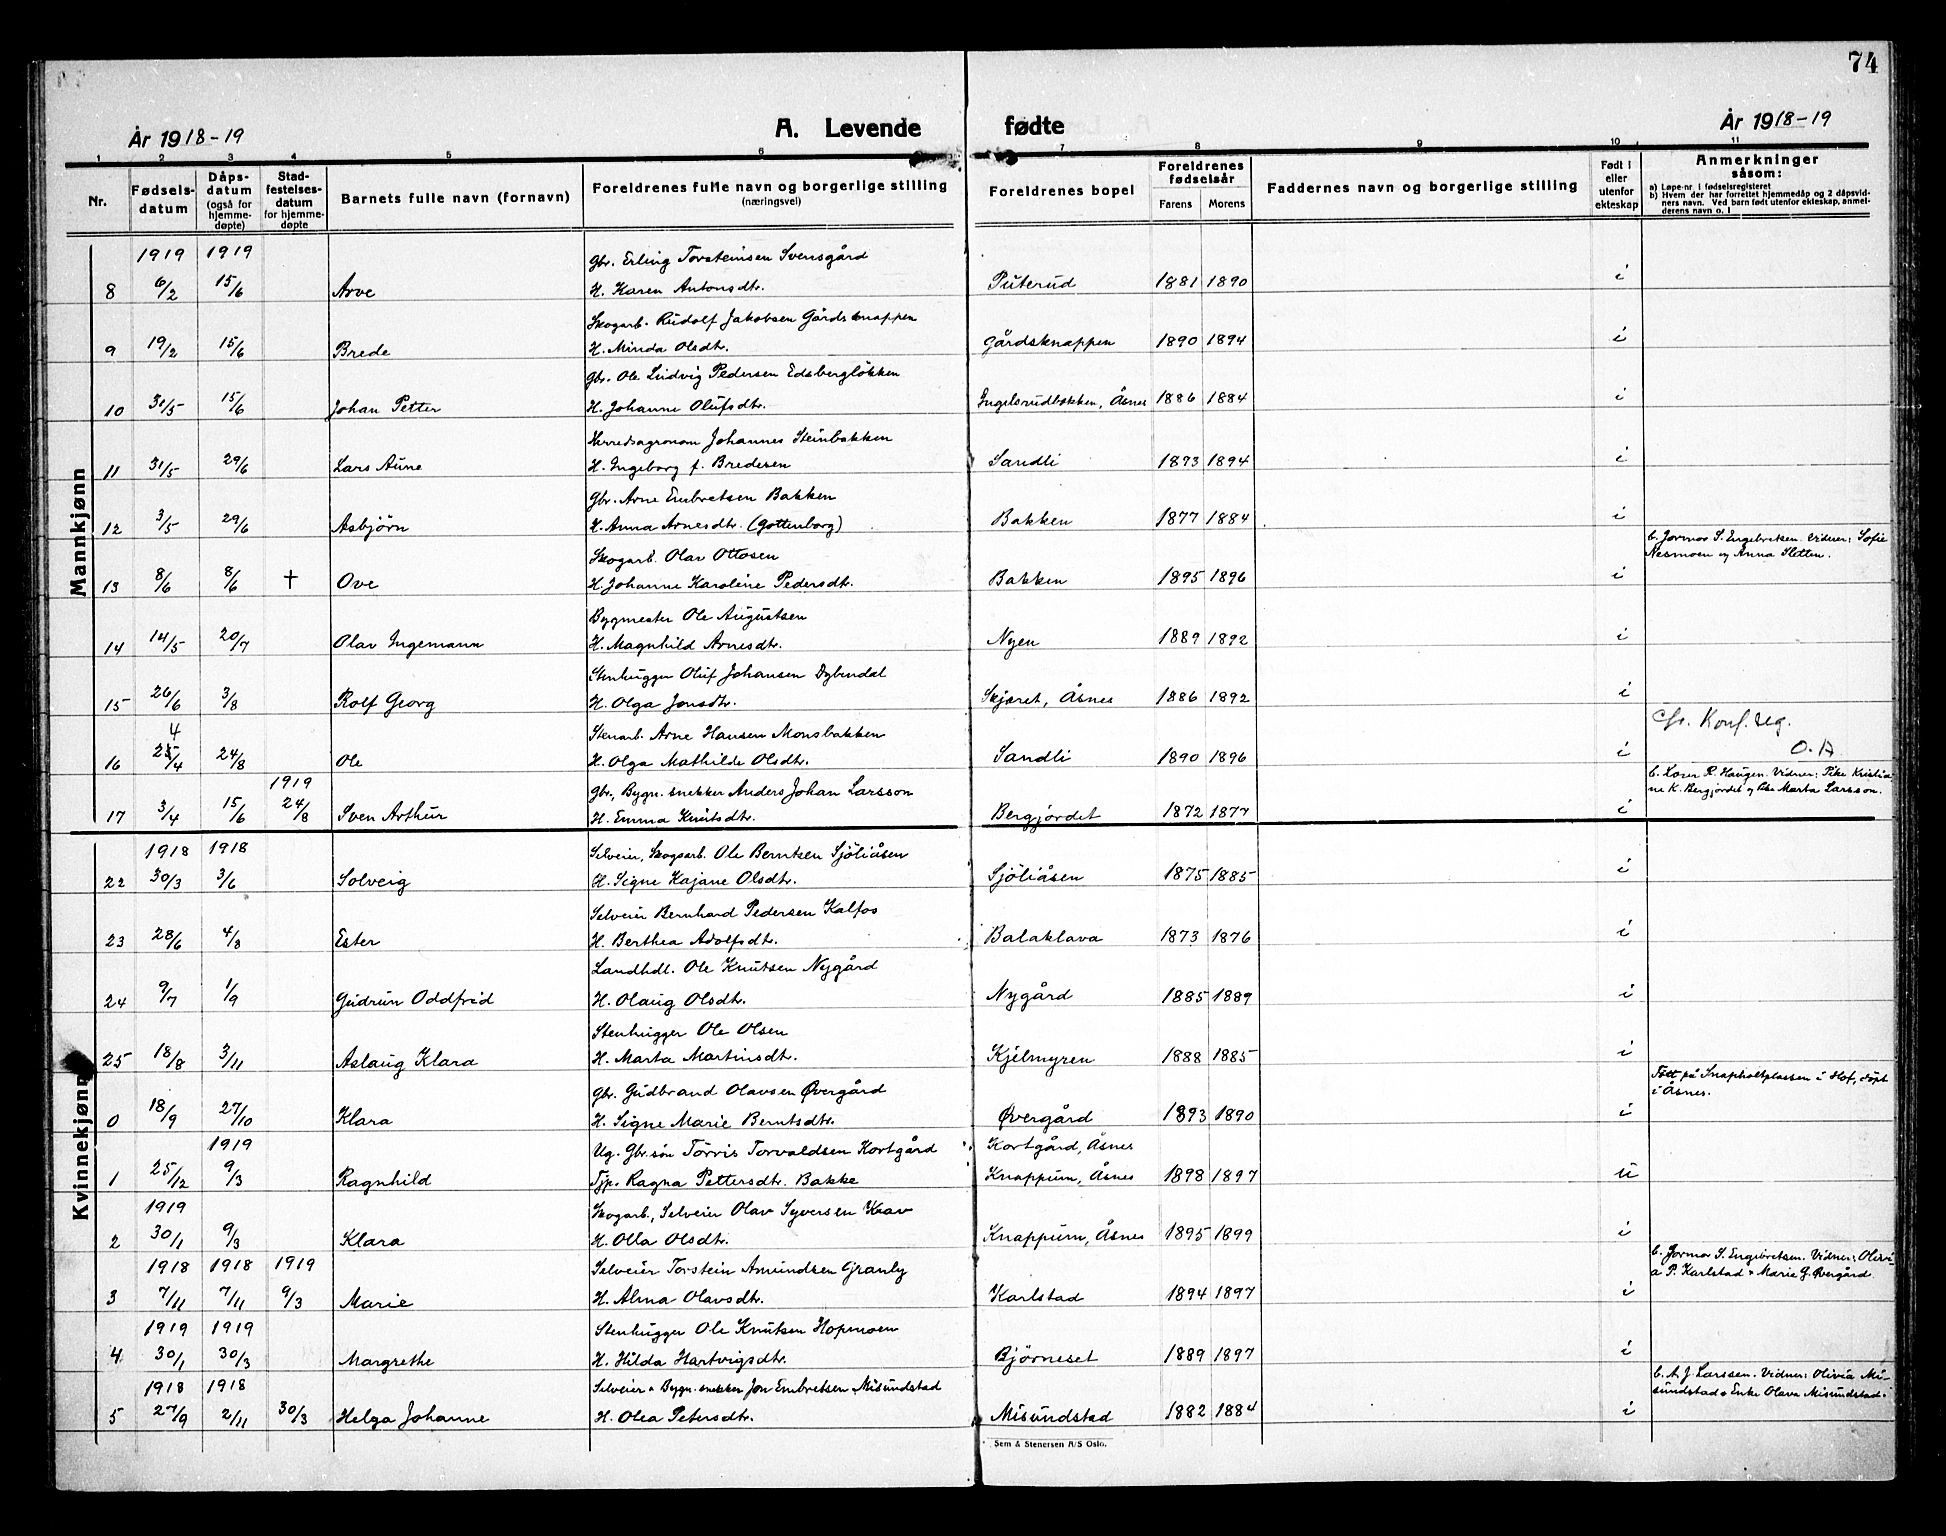 74
År 1918-19 A. Levende fødte År 1918-19
1 2 3 4 5 6 7 8 9 10 11
Nr. Fødsels-datum Dåps-datum (også for hjemme-døpte) Stad-festelses-datum for hjemme-døpte Barnets fulle navn (fornavn) Foreldrenes fulle navn og borgerlige stilling (næringsvei) Foreldrenes bopel Foreldrenes fødselsår Farens Morens Faddernes navn og borgerlige stilling Født i eller utenfor ekteskap Anmerkninger såsom:
a) Løpe-nr. i fødselsregisteret
b) Hvem der har forrettet hjemmedåp og 2 dåpsvid-
ners navn. Ved barn født utenfor ekteskap, anmel-
derens navn o. l
Mannkjønn
1919 1919 Gbr. Erling Torsteinsen Svensgård
8 6/2 15/6 Arve H. Karen Antonsdtr. Puterud 1881 1890 i
Skogarb. Rudolf Jakobsen Gårdsknappen
9 19/2 15/6 Brede H. Minda Olsdtr. Gårdsknappen 1890 1894 i
Gbr. Ole Ludvig Pedersen Edsbergløkken
10 31/5 15/6 Johan Petter H. Johanne Olufsdtr. Ingelsrudbakken, Åsnes 1886 1884 i
Herredsagronom Johannes Steinbakken
11 31/5 29/6 Lars Aune H. Ingeborg f. Bredesen Sandli 1893 1894 i
Gbr. Arne Embretsen Bakken
12 3/5 29/6 Asbjörn H. Anna Arnesdtr. (Gottenborg) Bakken 1877 1884 i
Skogarb. Olav Ottosen b. Jormor S. Engebretsen. Vidner: Sofie
Nesmoen og Anna Sletten.
13 8/6 8/6 † Ove H. Johanne Karoline Pedersdtr. Bakken 1895 1896 i
Bygmester Ole Augustsen
14 14/5 20/7 Olav Ingemann H. Magnhild Arnesdtr. Nyen 1889 1892 i
Stenhugger Oluf Johansen Dybendal
15 26/6 3/8 Rolf Georg H. Olga Jonsdtr. Skjæret, Åsnes 1886 1892 i
4 Stenarb. Arne Hansen Monsbakken cfr. Konf. reg.
16 25/4 24/8 Ole H. Olga Mathilde Olsdtr. Sandli 1890 1896 i O. A
1919 Gbr., Bygn. snekker Anders Johan Larsson b. Lærer R. Haugen. Vidner: Pike Kristia-
ne K. Bergjordet og Marta Larsson.
17 3/4 15/6 24/8 Sven Arthur H. Emma Knutsdtr. Bergjordet 1872 1877 i
Kvinnekjønn
1918 1918 Selveier, Skogsarb. Ole Berntsen Sjöliåsen
22 30/3 3/6 Solveig H. Signe Kajane Olsdtr. Sjöliåsen 1875 1885 i
Selveier Bernhard Pedersen Kalfos
23 28/6 4/8 Ester H. Berthea Adolfsdtr. Balaklava 1873 1876 i
Landhdl. Ole Knutsen Nygård
24 9/7 1/9 Gudrun Oddfrid H. Olaug Olsdtr. Nygård 1885 1889 i
Stenhugger Ole Olsen
25 18/8 3/11 Aslaug Klara H. Marta Martinsdtr. Kjelmyren 1888 1885 i
Gbr. Gudbrand Olavsen Øvergård Født på Snapholtplassen i Hof, döpt
i Åsnes.
0 18/9 27/10 Klara H. Signe Marie Berntsdtr. Øvergård 1893 1890 i
1919 Ug. Gbr.sön Torris Torvaldsen Kortgård Kortgård, Åsnes
1 25/12 9/3 Ragnhild Tjp. Ragna Pettersdtr. Bakke Knappum, Åsnes 1898 1897 u
1919 Skogarb., Selveier Olav Syversen Krav
2 30/1 9/3 Klara H. Olla Olsdtr. Knappum, Åsnes 1895 1899 i
1918 1918 1919 Selveier Torstein Amundsen Granly b. Jormor S. Engebretsen. Vidner: Olivi-
a P. Karlstad + Marie G. Øvergård.
3 7/11 7/11 9/3 Marie H. Alma Olavsdtr. Karlstad 1894 1897 i
1919 1919 Stenhugger Ole Knutsen Hopmoen
4 30/1 30/3 Margrethe H. Hilda Hartvigsdtr. Björneset 1889 1897 i
1918 1918 Selveier + Bygn. snekker Jon Embretsen Misundstad b. A. J. Larssen. Vidner: Olivia Mi-
sundstad + Enke Olava Misundstad.
5 27/9 2/11 30/3 Helga Johanne H. Olea Petersdtr. Misundstad 1882 1884 i
Sem & Stenersen A/S Oslo.